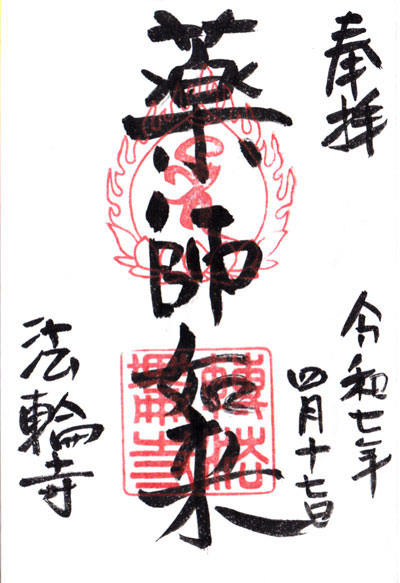 奉拝
令和七年
四月十七日
薬師如来
法輪寺